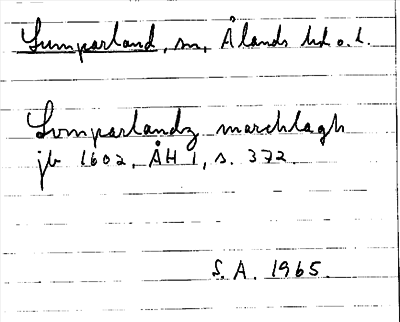 Lumparland, sn, Ålands hd o. l.
Lomparlandz marchlagh
jb 1602, ÅH 1, s. 372.
S.A. 1965.